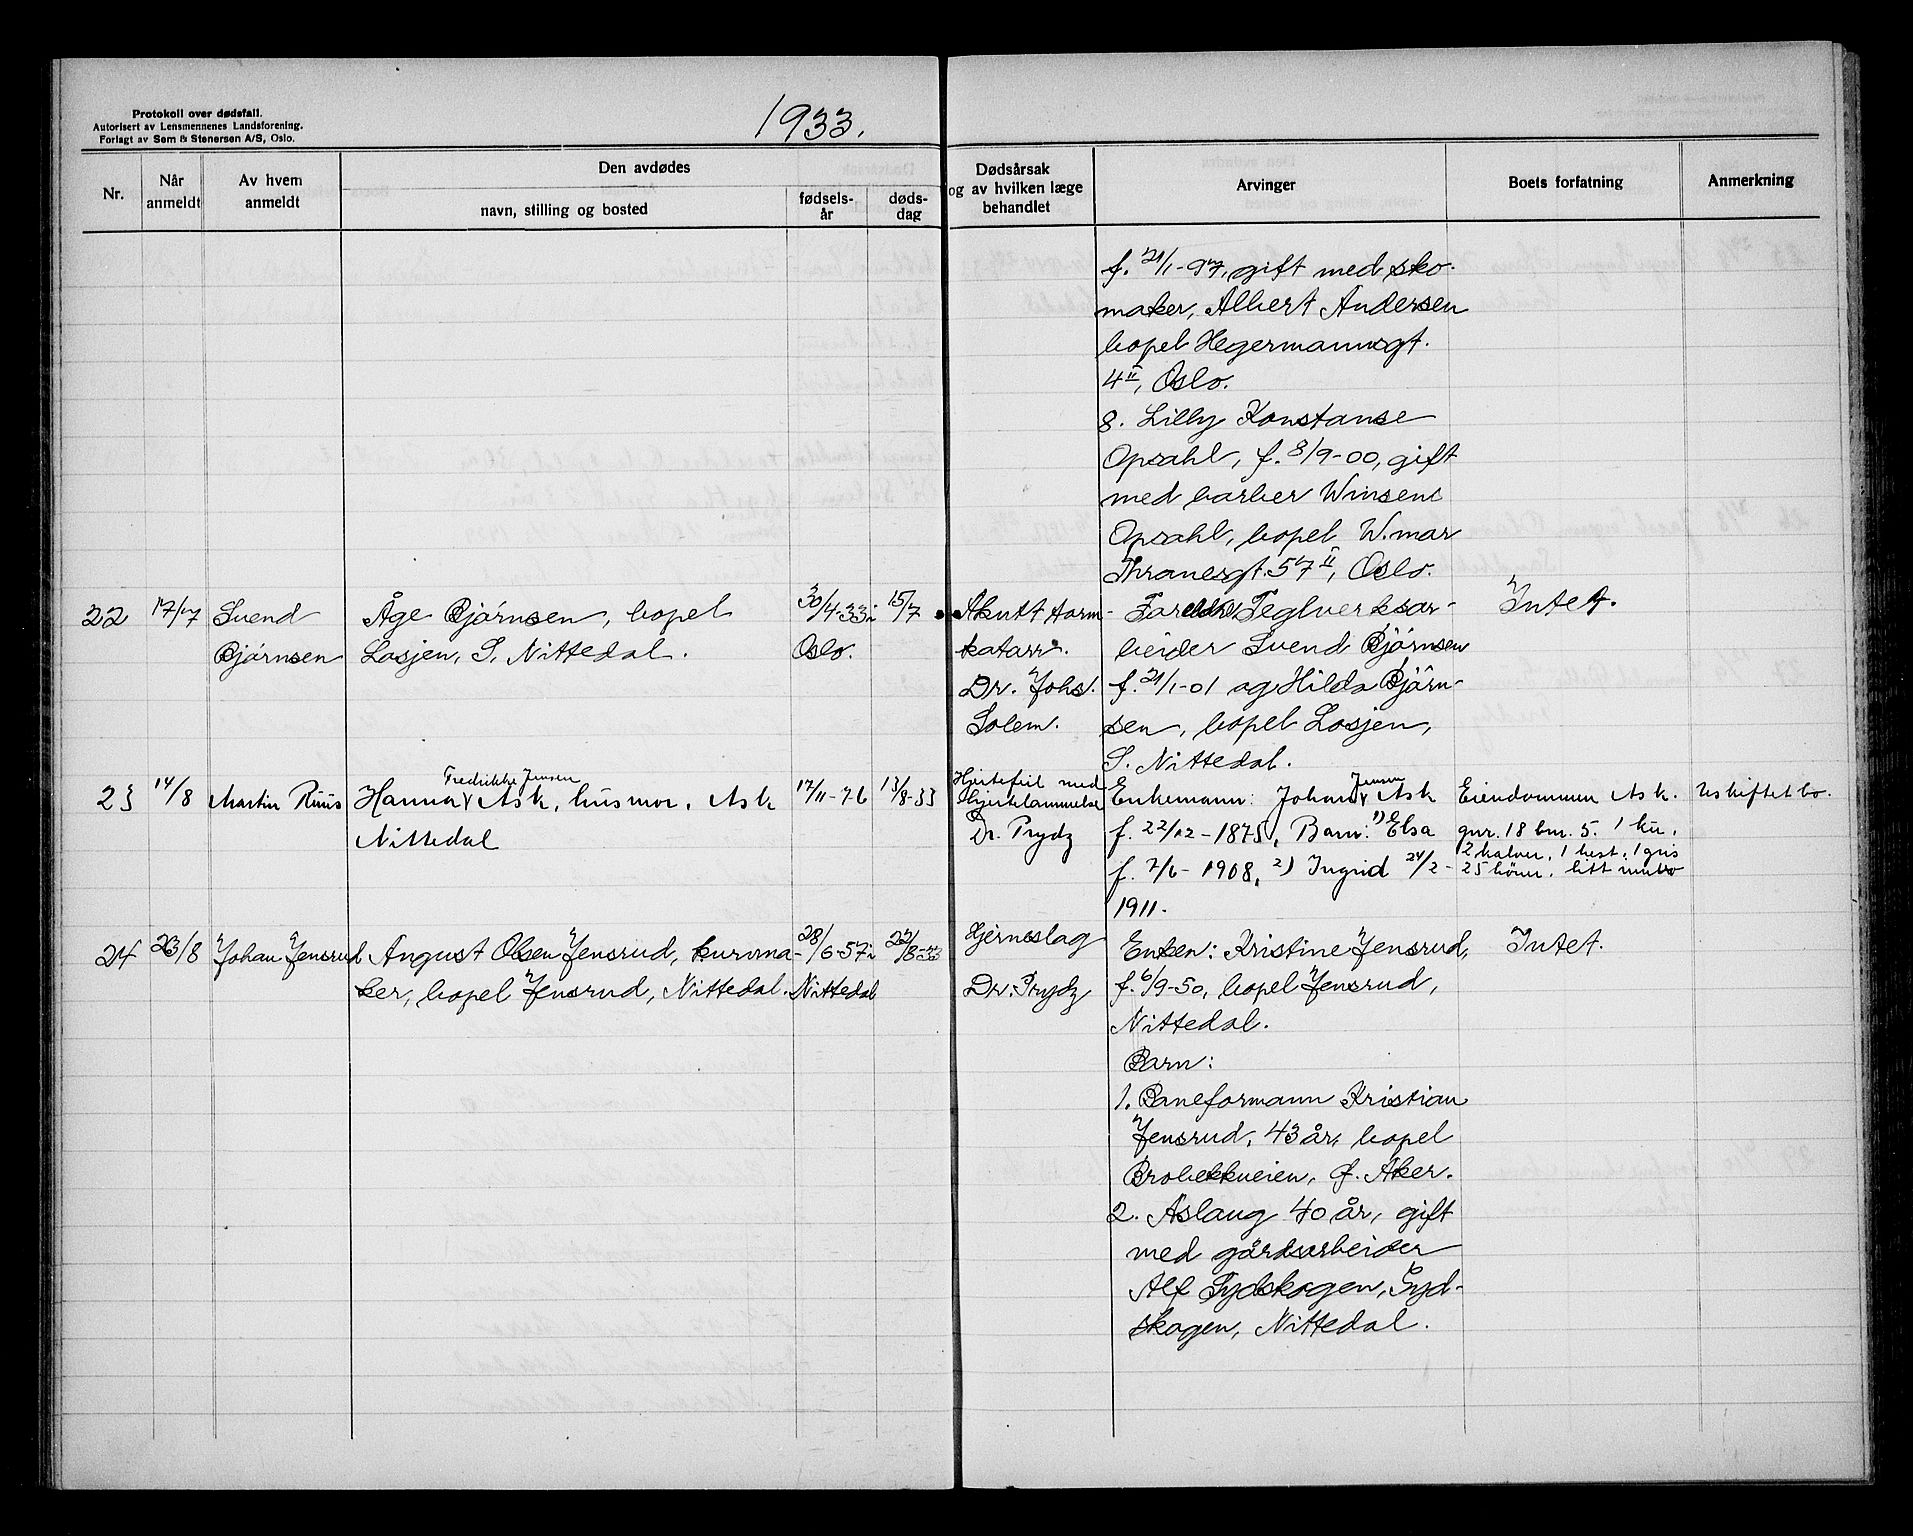 Protokoll over dødsfall.
Autorisert av Lensmennenes Landsforening.
Forlagt av Sem & Stenersen A/S, Oslo.
1933.
Nr.
Når anmeldt
Av hvem anmeldt
Den avdødes
navn, stilling og bosted
fødsels-år
døds-dag
Dødsårsak og av hvilken læge behandlet
Arvinger
Boets forfatning
Anmerkning
f. 21/1-97, gift med sko-
maker, Albert Andersen
bopel Hegermannsgt.
4 II, Oslo.
8. Lilly Konstanse
Opsahl, f. 8/9-00, gift
med barber Winsent
Opsahl, bopel W. mar
Thranesgt. 57 II, Oslo.
22
17/7
Svend
Bjørnsen
Åge Bjørnsen, bopel
Losjen, S. Nittedal.
30/4-33 i
Oslo.
15/7
Akutt tarm-
katarr.
Dr. Johs.
Solem.
Foreldre Teglverksar-
beider Svend Bjørnsen
f. 21/1-01 og Hilda Bjørn-
sen, bopel Losjen,
S. Nittedal.
Intet.
23
14/8
Martin Ruus
Fredrikke Jensen
Hanna Ask, husmor, Ask
Nittedal
17/11-76
13/8-33
Hjertefeil med
Hjertelammelse
Dr. Prydz
Jensen
Enkemann: Johan Ask
f. 22/12-1875, Barn: 1) Elsa
f. 7/6-1908, 2) Ingrid 24/2-
1911.
Eiendommen Ask.
gnr. 18 bnr. 5. 1 ku,
2 kalver, 1 hest, 1 gris
25 høner, litt innbo
Uskiftet bo.
24
23/8
Johan Jensrud
August Olsen Jensrud, kurvma-
ker, bopel Jensrud, Nittedal.
28/6-57 i
Nittedal
22/8-33
Hjerneslag
Dr. Prydz
Enken: Kristine Jensrud,
f. 6/9-50, bopel Jensrud,
Nittedal.
Barn:
1. Baneformann Kristian
Jensrud, 43 år, bopel
Brobekkveien, Ø. Aker.
2. Aslaug 40 år, gift
med gårdsarbeider
Alf Sydskogen, Syd-
skogen, Nittedal.
Intet.